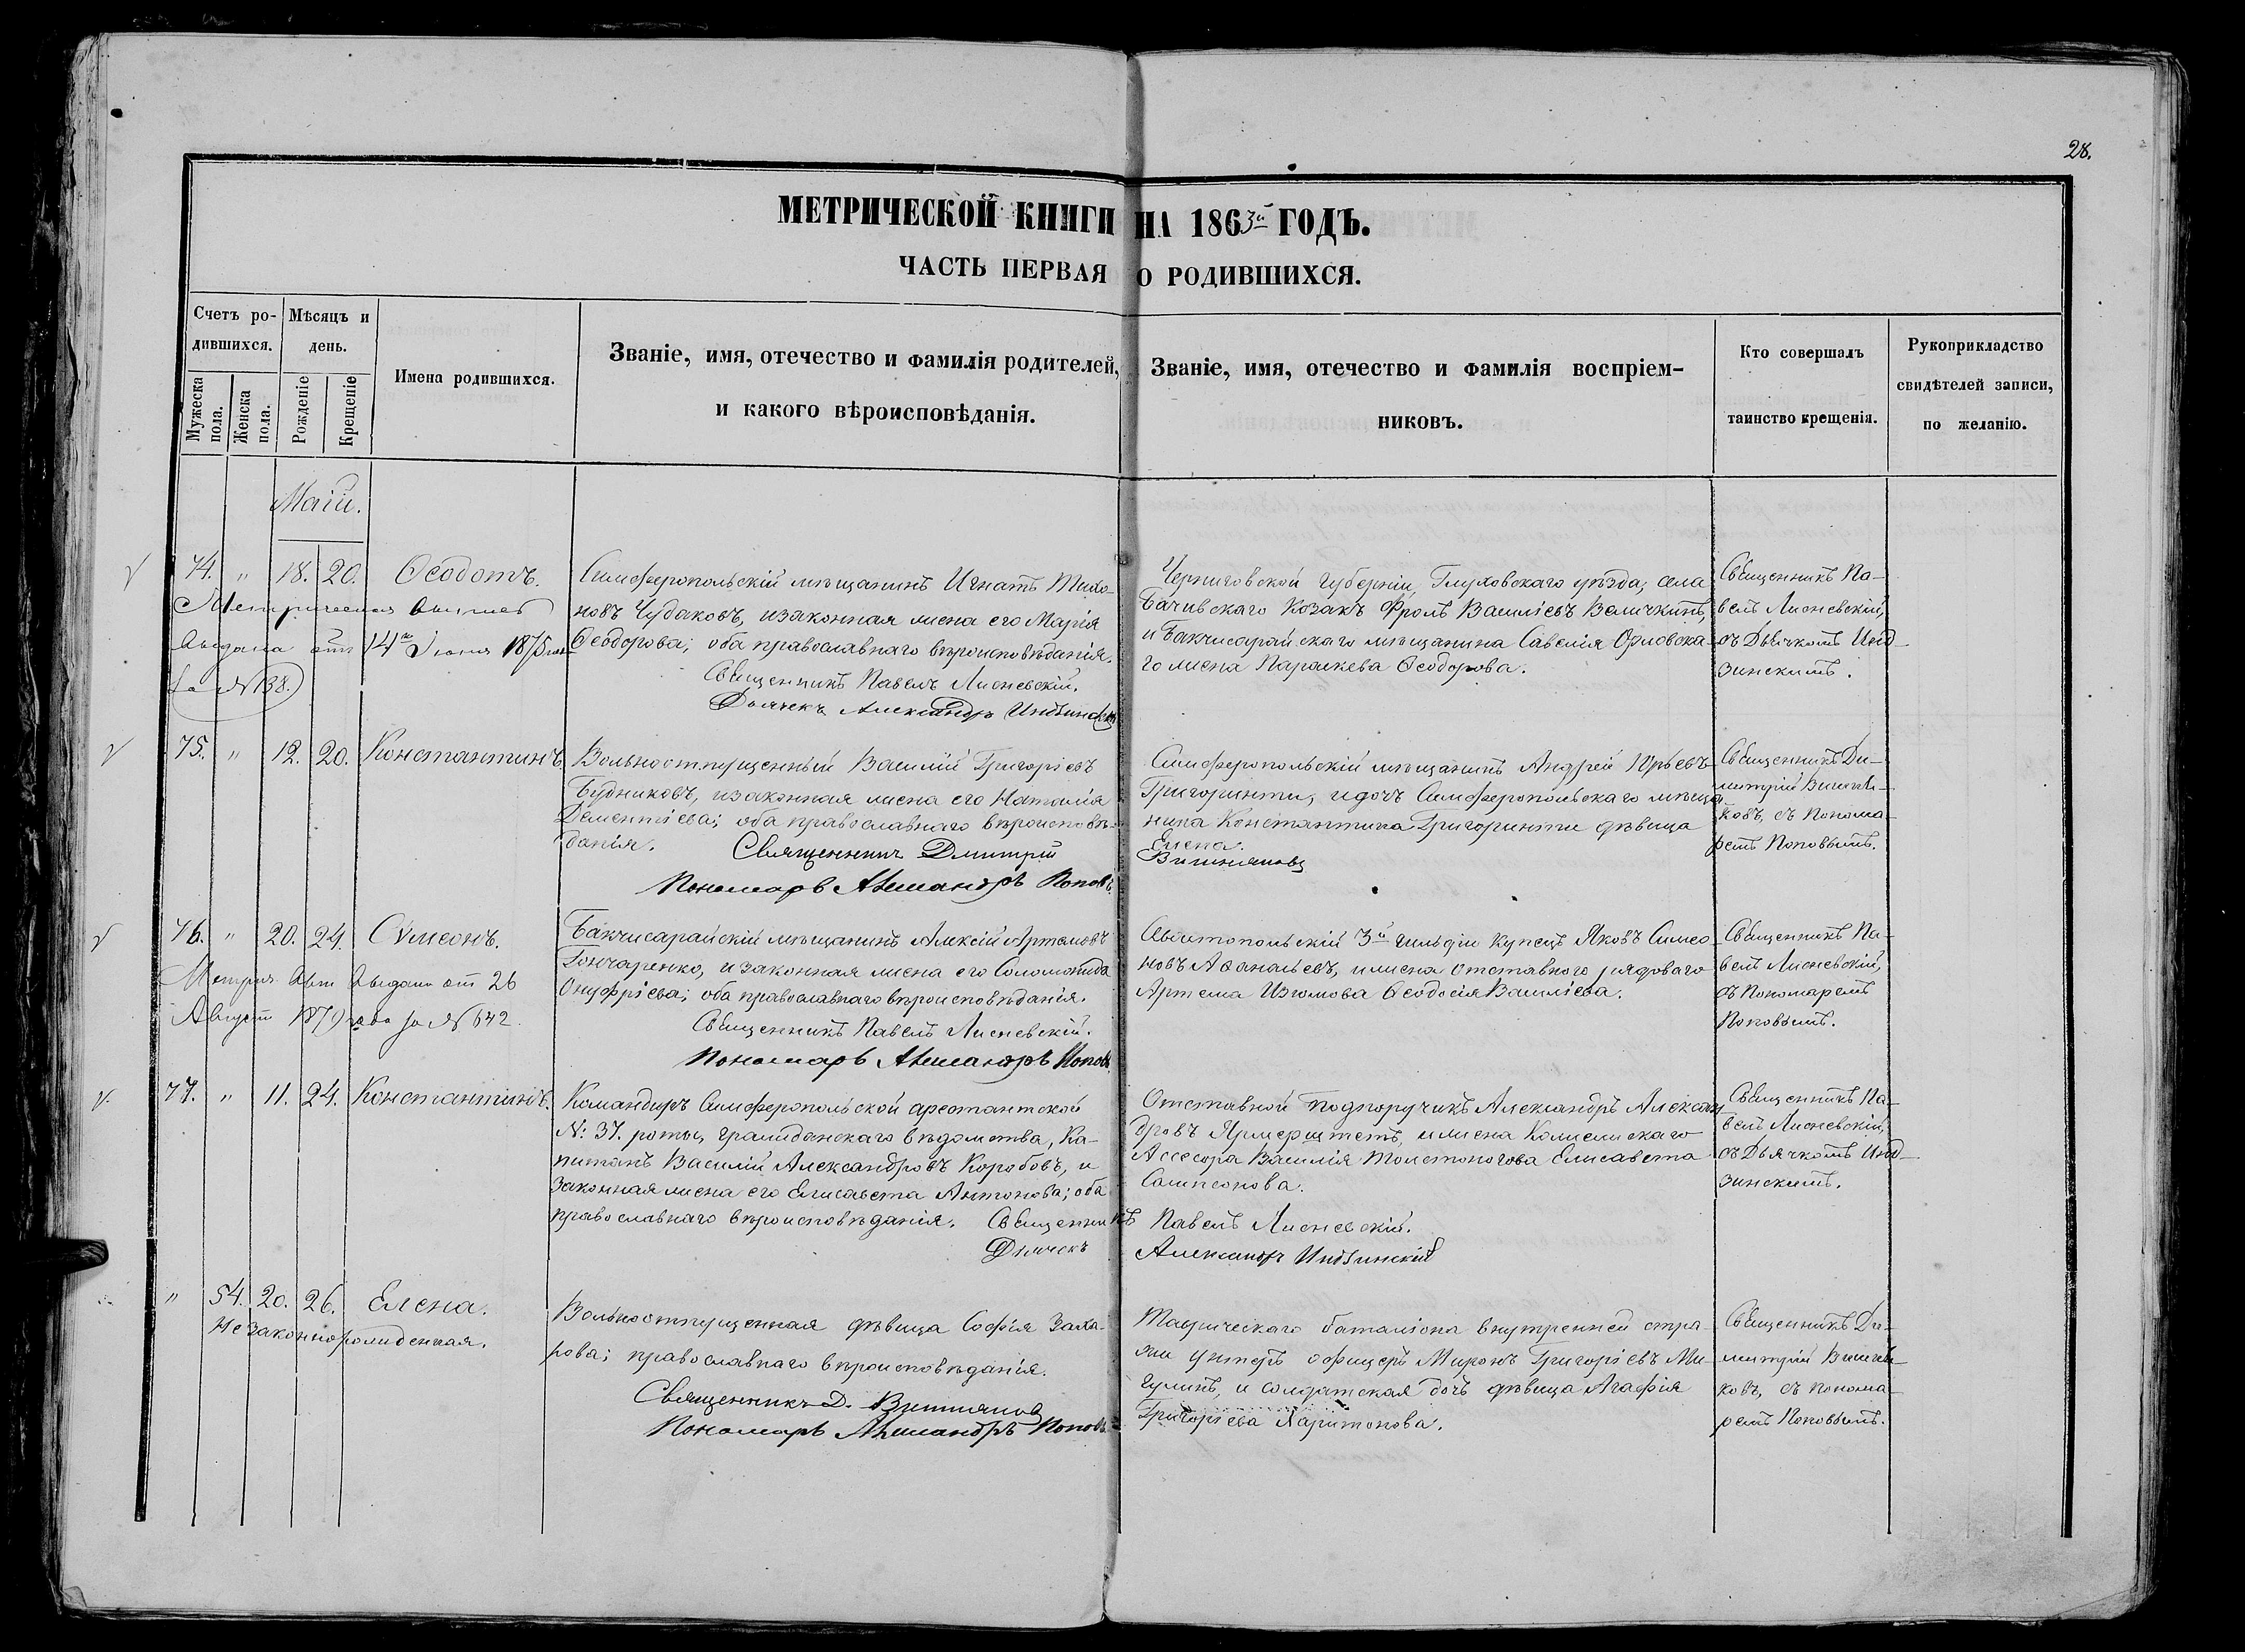 28.
МЕТРИЧЕСКОЙ КНИГИ НА 1863й ГОДЪ.
ЧАСТЬ ПЕРВАЯ О РОДИВШИХСЯ.
Счетъ ро-
дившихся.
Мужеска
пола.
Женска
пола.
Мѣсяцъ и
день.
Рожденіе
Крещеніе
Имена родившихся.
Званіе, имя, отечество и фамилія родителей,
и какого вѣроисповѣданія.
Званіе, имя, отечество и фамилія воспріем-
никовъ.
Кто совершалъ
таинство крещенія.
Рукоприкладство
свидѣтелей записи,
по желанію.
Маій.
74. " 18. 20. Ѳеодотъ.
Метрическая
выдана отъ 14го Іюня 1875
за № 138.
Симферопольскій мѣщанинъ Игнатъ Тихо-
новъ Чудаковъ, изаконная жена его Марія
Ѳеодорова; оба православнаго вѣроисповѣданія.
Священникъ Павелъ Лисневскій.
Дьячекъ Александръ Индзинскій
Черниговской губерніи, Глуховскаго уѣзда, села
Бачивскаго Козакъ Фролъ Василіевъ Величкинъ,
и Бакчисарайскаго мѣщанина Савелія Орловска-
го жена Параскева Ѳеодорова.
Священникъ Па-
велъ Лисневскій,
съ Дьячкомъ Инд-
зинскимъ.
75. " 12. 20. Константинъ.
Вольноотпущенный Василій Григоріевъ
Будниковъ, изаконная жена его Наталія
Дементіева; оба православнаго вѣроисповѣ-
данія.
Священникъ Дмитрій Вишняковъ
Пономарь Александръ Поповъ.
Симферопольскій мѣщанинъ Андрей Юрьевъ
Григоринти, идочь Симферопольскаго мѣща-
нина Константина Григоринти дѣвица
Елена.
Священникъ Ди-
митрій Вишня-
ковъ, съ Понома-
ремъ Поповымъ.
76. " 20. 24. Сѵмеонъ.
Метрич. выдана от 26
Август 1879 года за № 642.
Бакчисарайскій мѣщанинъ Алексій Артемовъ
Гончаренко, изаконная жена его Соломонида
Онуфріева; оба православнаго вѣроисповѣданія.
Священникъ Павелъ Лисневскій.
Пономарь Александръ Поповъ.
3й гильдіи купецъ Яковъ Симео-
новъ Аѳанасьевъ, ижена отставного рядоваго
Артема Изюмова Ѳеодосія Василіева.
Священникъ Па-
велъ Лисневскій,
съ Пономаремъ
Поповымъ.
77. " 11. 24. Константинъ.
Командиръ Симферопольской арестантской
№ 37. роты, гражданскаго вѣдомства, Ка-
питанъ Василій Александровъ Коробовъ, и
законная жена его Елисавета Антонова; оба
православнаго вѣроисповѣданія. Священникъ Павелъ Лисневскій.
Дьячекъ Александръ Индзинскій
Отставной Подпоручикъ Александръ Алексан-
дровъ Ярмерштетъ, ижена Коллежскаго
Ассесора Василія Толстоногова Елисавета
Сампсонова.
Священникъ Па-
велъ Лисневскій,
съ Дьячкомъ Инд-
зинскимъ.
" 54. 20. 26. Елена.
Незаконнорожденная.
Вольноотпущенная дѣвица Софія Заха-
рова; православнаго вѣроисповѣданія.
Священникъ Д. Вишняковъ
Пономарь Александръ Поповъ
Таврическаго баталіона внутренней стра-
жи унтеръ офицеръ Миронъ Григоріевъ Ми-
гулинъ, и солдатская дочь дѣвица Агафія
Григоріева Харитонова.
Священникъ Ди-
митрій Вишня-
ковъ, съ понома-
ремъ Поповымъ.